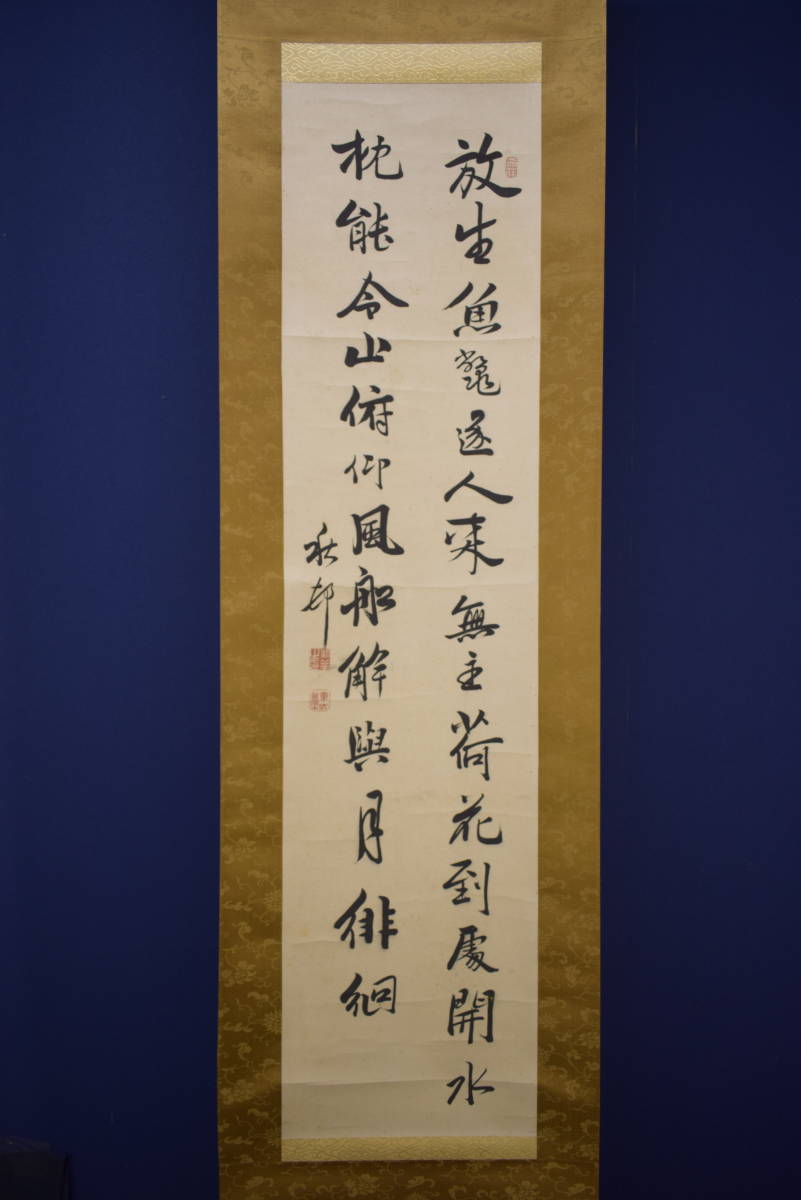 放生魚鼈逐人来無主荷花到處開水
枕能令山俯仰風船解與月徘徊
秋邨